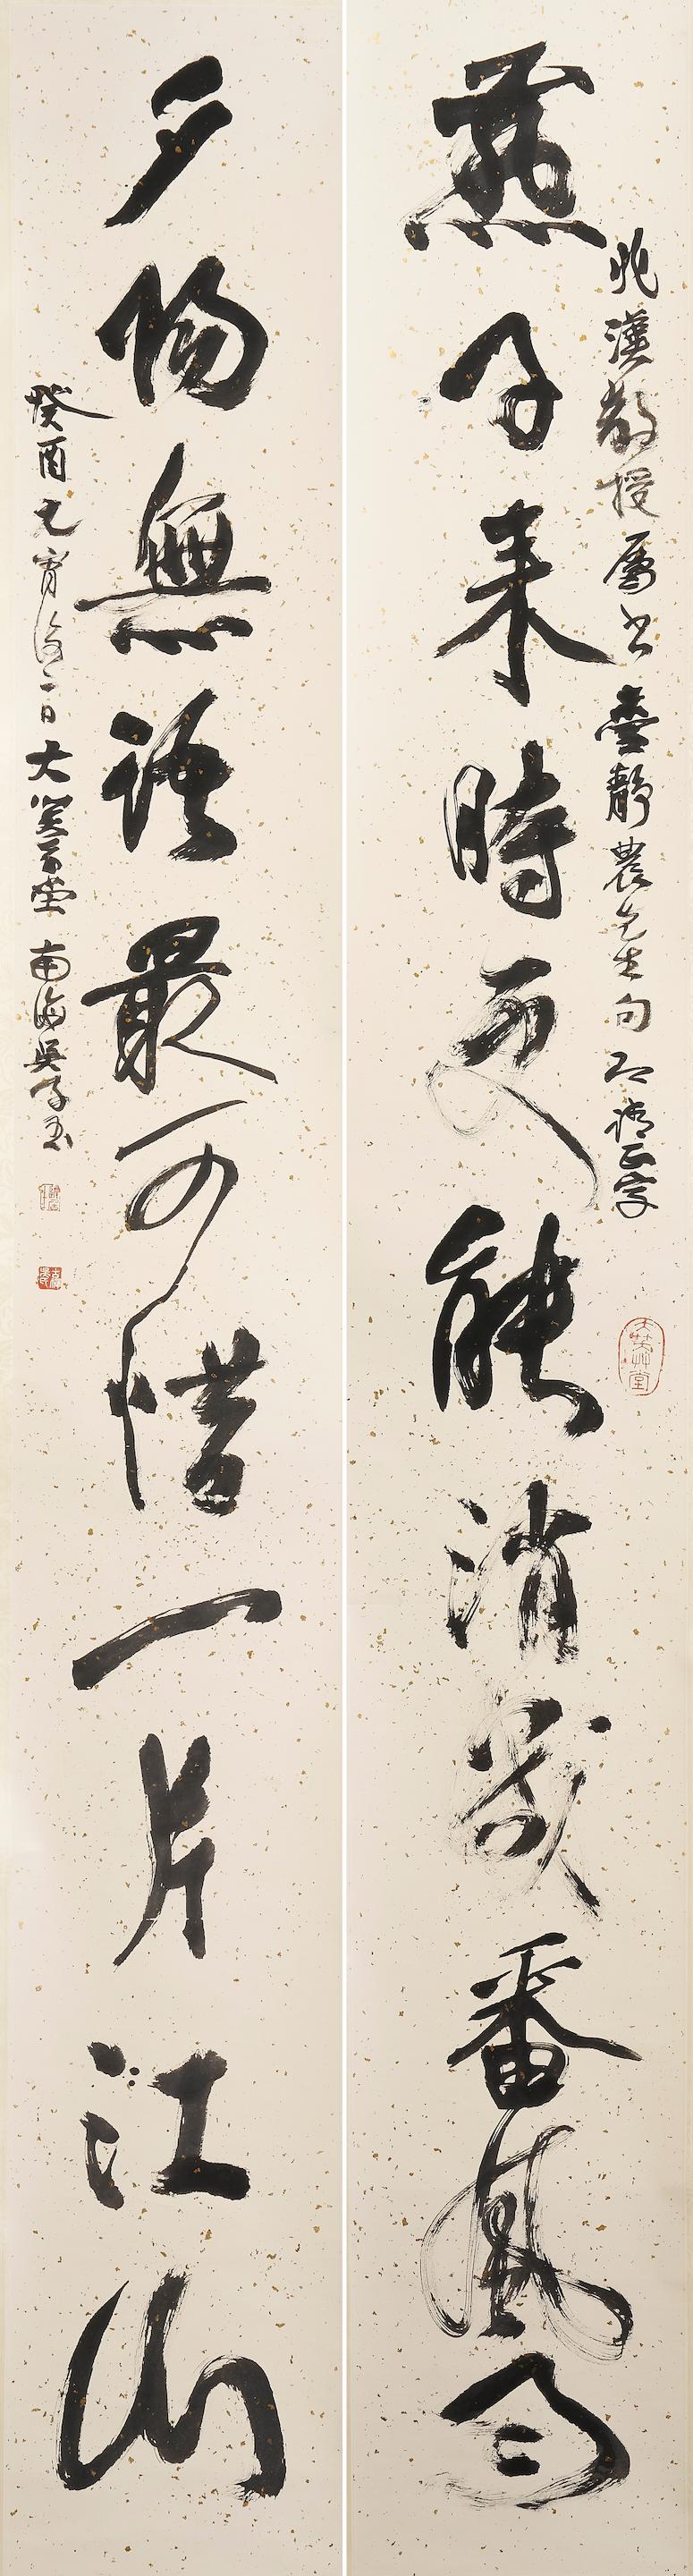 兆漢教授屬書臺靜農先生句即請正字
大笑艸堂
燕子来時更能消幾番風雨
夕陽無語最可惜一片江山
癸酉元宵後一日大笑草堂南海吳子玉